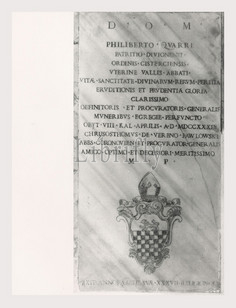 D · O · M
PHILIBERTO · QVARRE
PATRITIO · DIVIONENSI
ORDINIS · CISTERCIENSIS
VTERINE VALLIS · ABBATI
VITÆ · SANCTITATE · DIVINARVM · RERVM · PERITIA
ERVDITIONIS ET PRVDENTIA GLORIA
CLARISSIMO
DEFINITORIS ET PROCVRATORIS GENERALIS
MVNERIBVS · EGREGIE · PERFVNCTO
OBIIT VIII · KAL · APRILIS · A · D ·
CHRISOSTHOMVS · DE
ABBAS ET · PROCVRATOR · GENERALIS
AMICO · OPTIMO · ET DECESSORI · MERITISSIMO
M · P